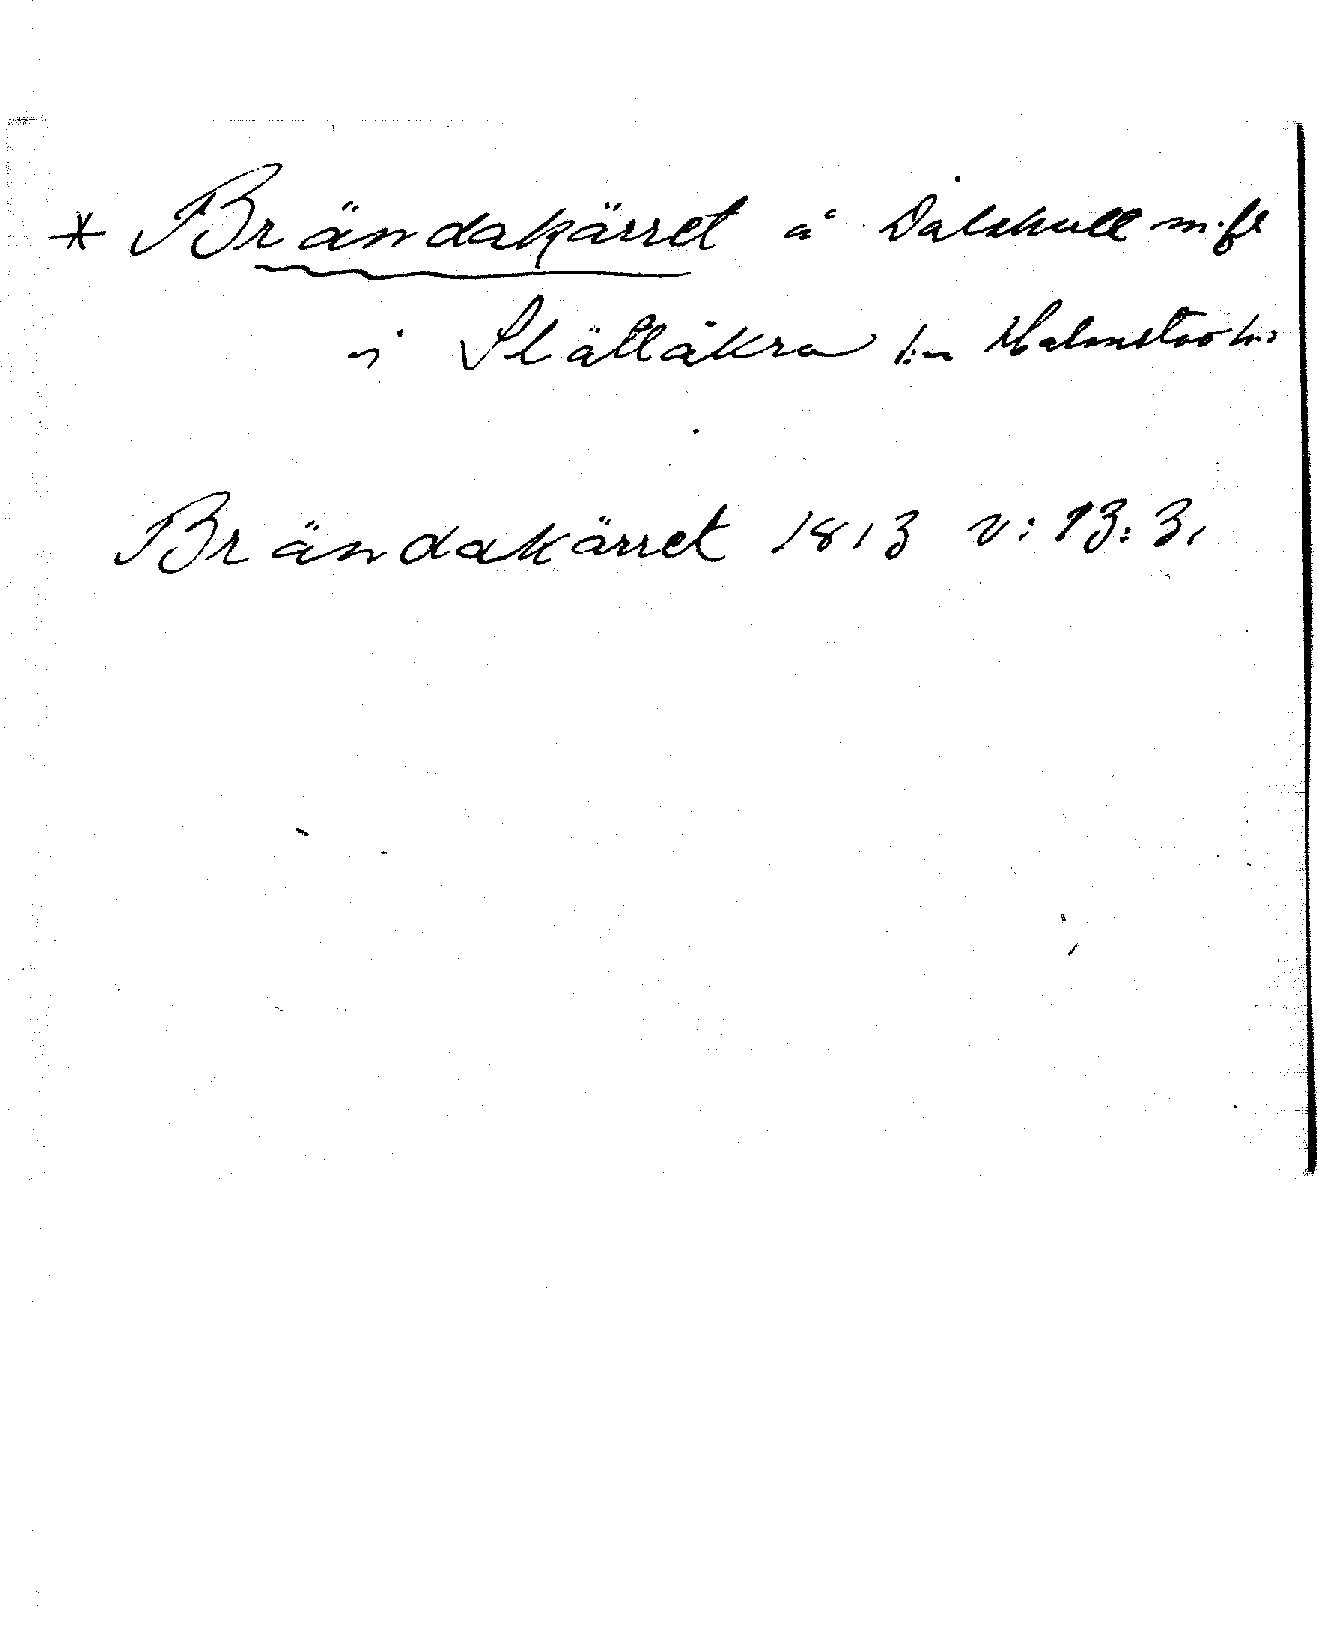 * Brändakärret å Dalskull m.fl
i Slättåkra s:n Halmstad h:s
Brändakärret 1813 v: 13: 3.